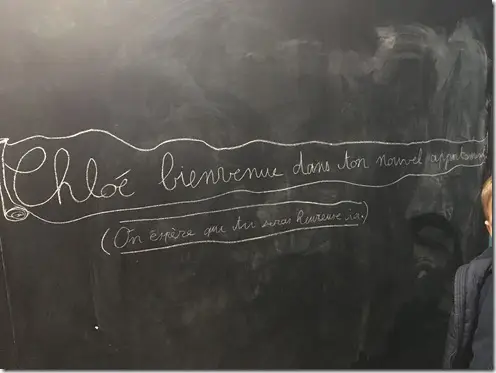 Chloé bienvenue dans ton nouvel appartement
(On espère que tu seras heureuse ici.)